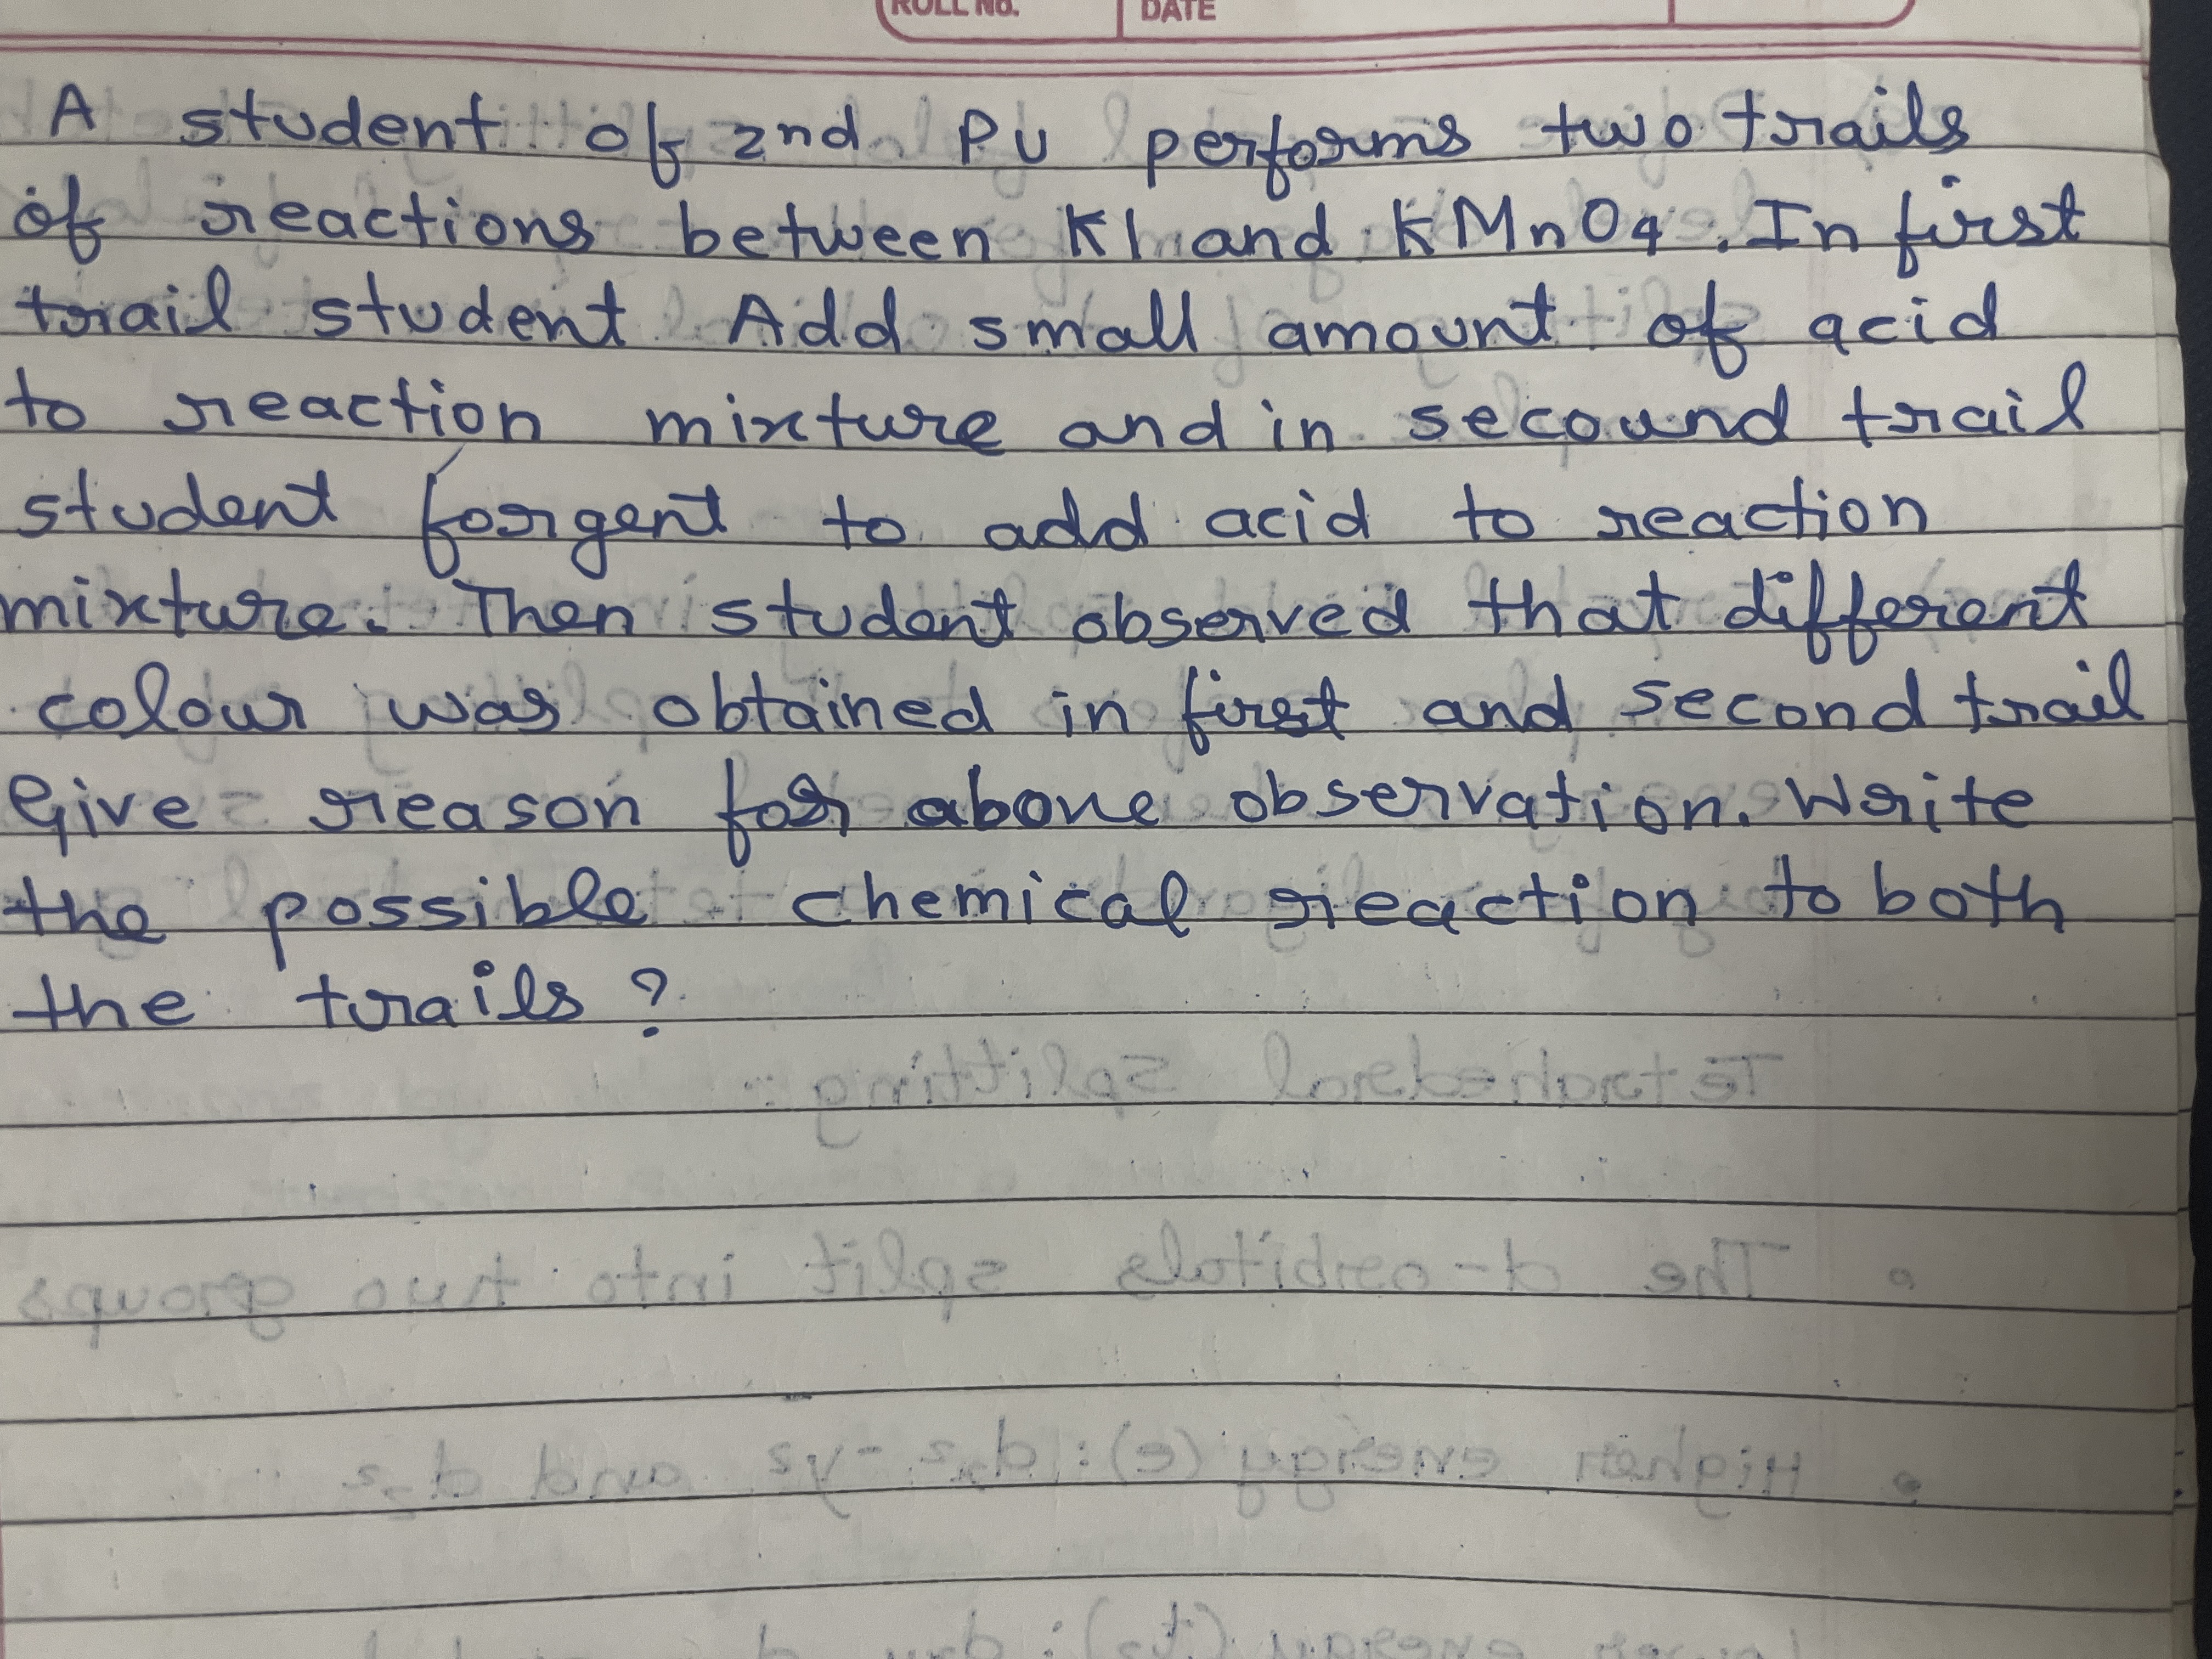 ROLL No. DATE
A student of 2nd PU performs two trails
of reactions between KI and KMnO4. In first
trail student Add small amount of acid
to reaction mixture and in secound trail
student forgent to add acid to reaction
mixture. Then student observed that different
colour was obtained in first and second trail
Give reason for above observation. Write
the possible chemical reaction to both
the trails?
Tetrahedral splitting :-
• The d-orbitals split into two groups
• Higher energy (e): dx²-y² and dz²